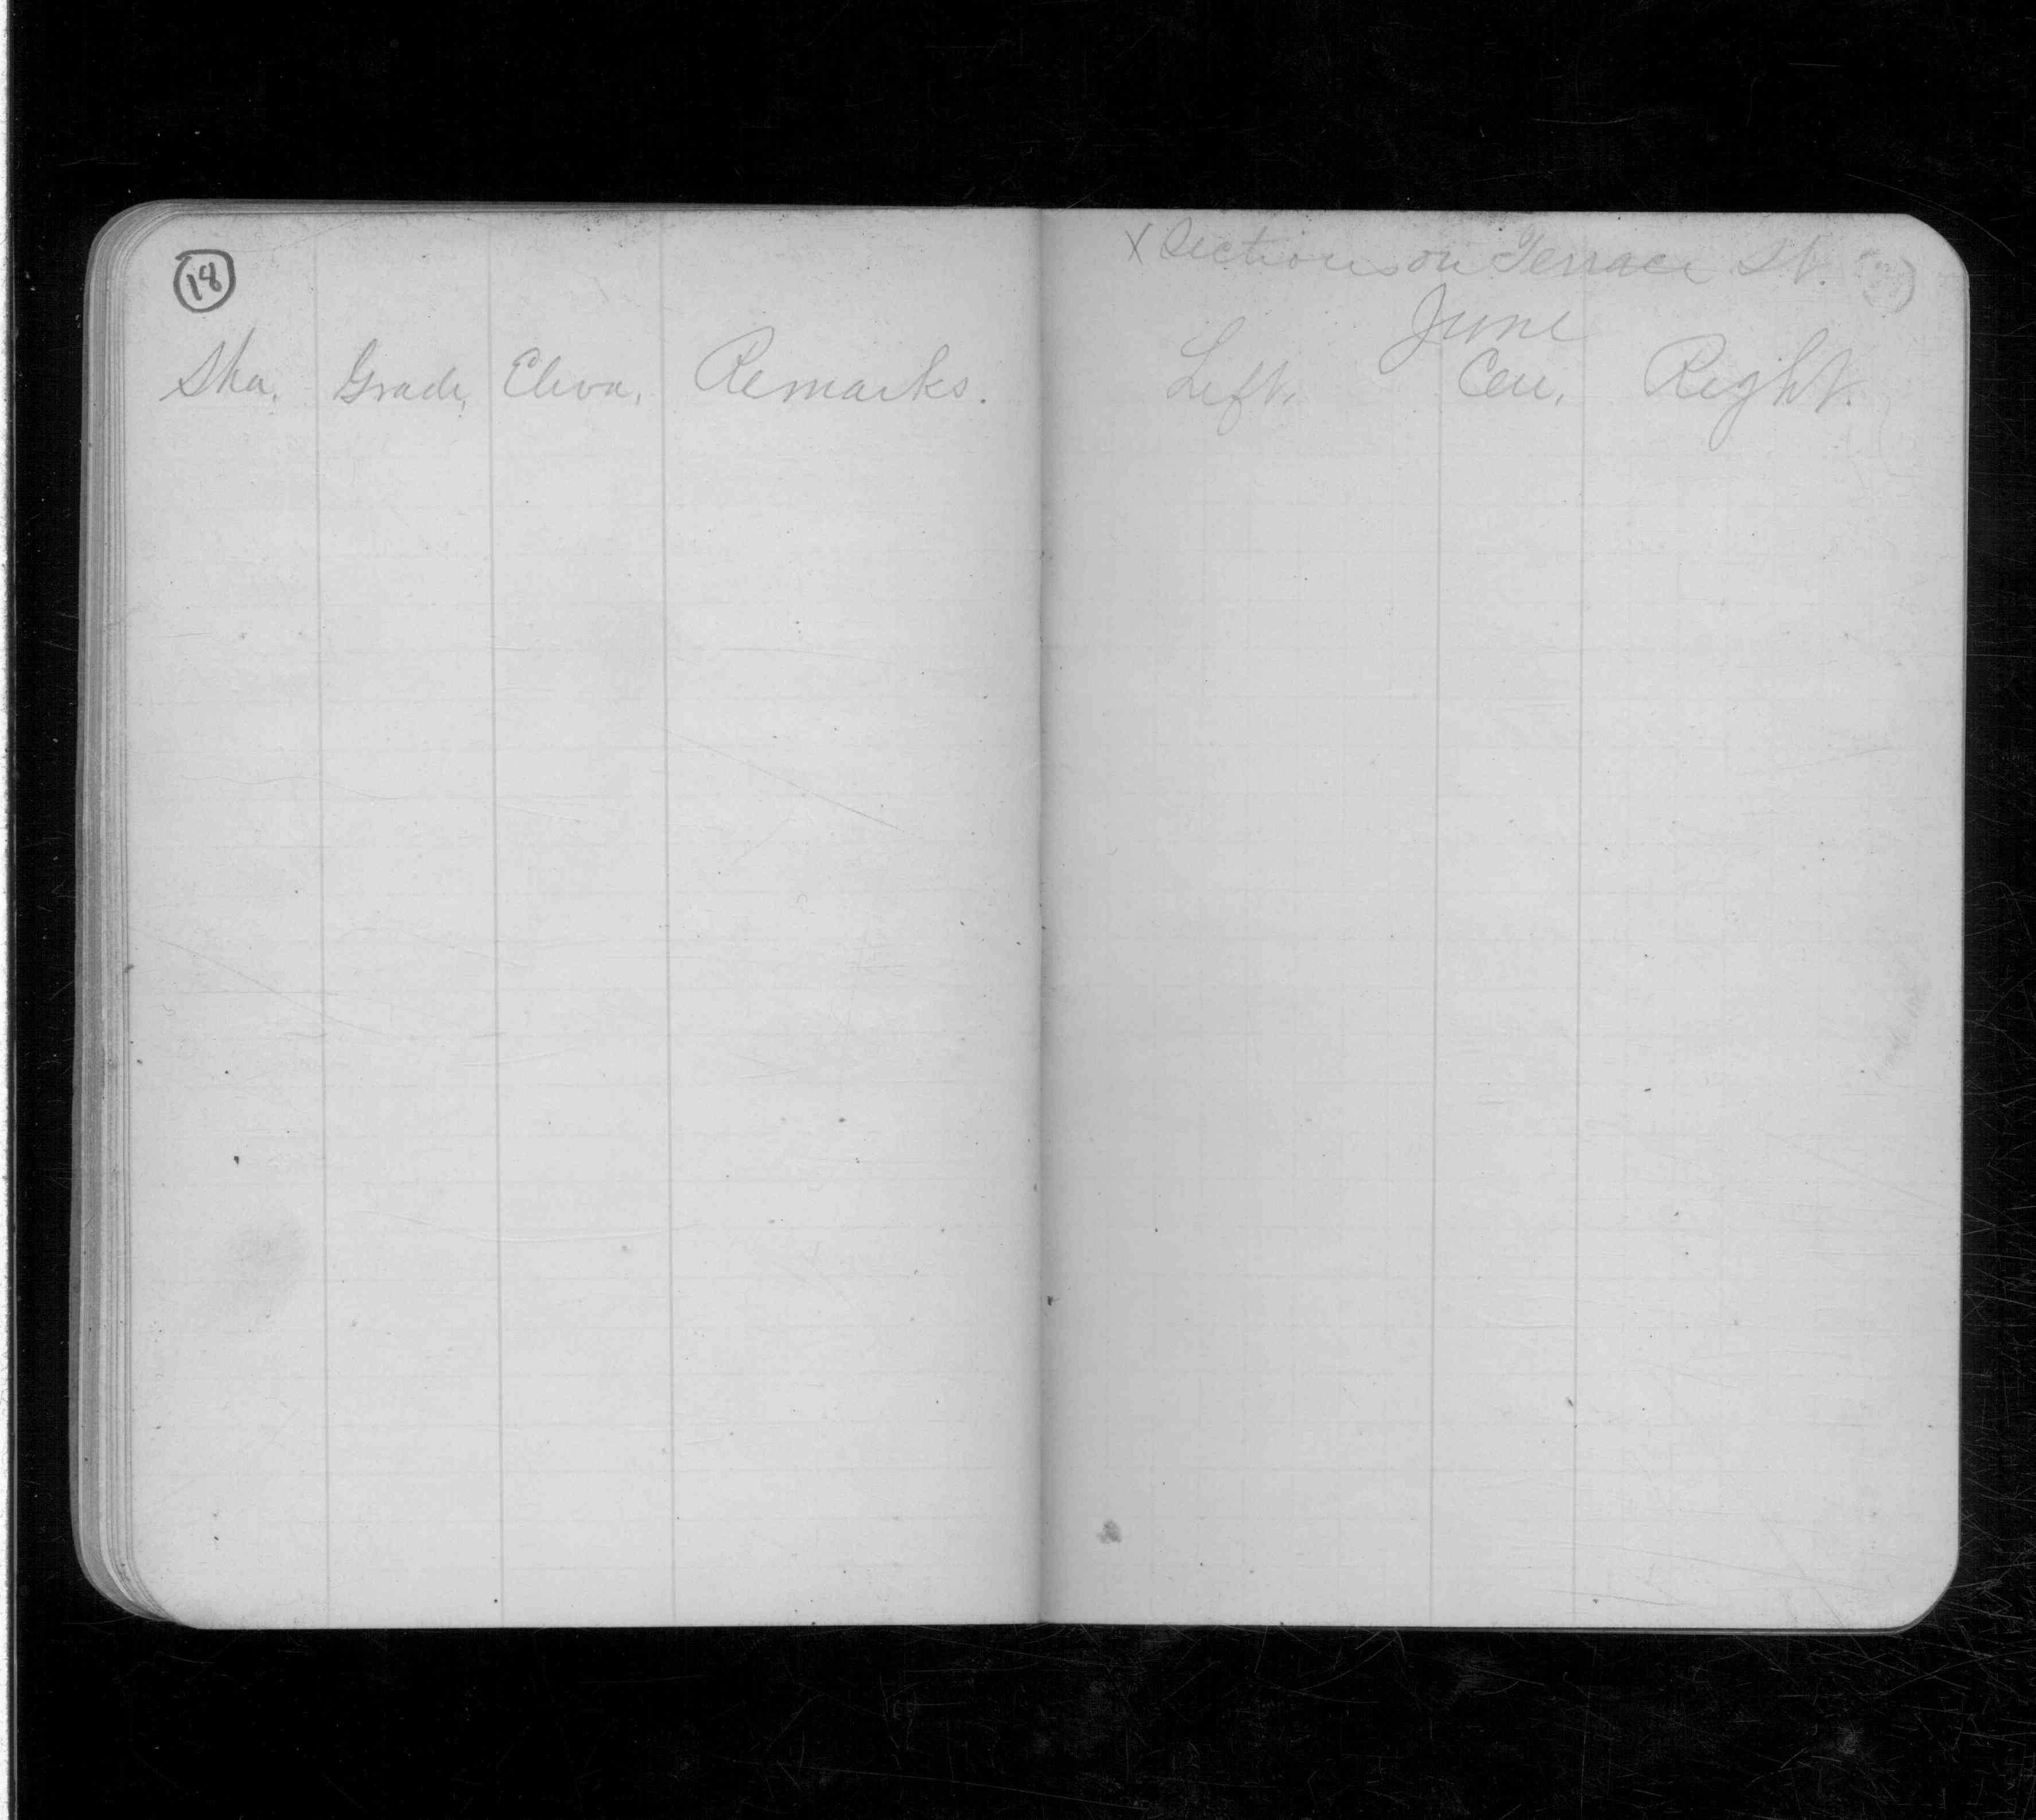 18
Sta. Grade, Eleva, Remarks.
X Sections on Terrace St.
June
Left. Cen. Right.